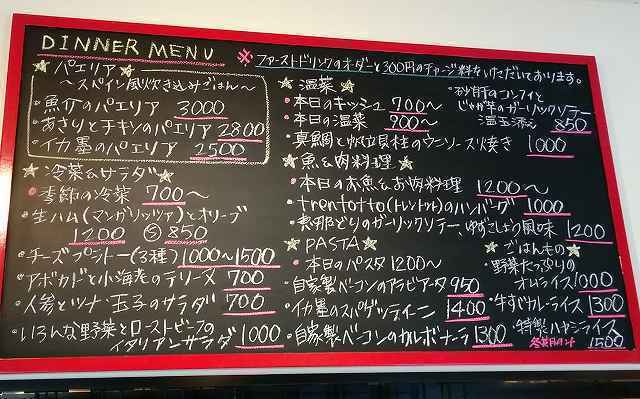 DINNER MENU
※ファーストドリンクのオーダーと300円のチャージ料をいただいております。
☆パエリア☆
～スペイン風炊き込みごはん～
・魚介のパエリア 3000
・あさりとチキンのパエリア 2800
・イカ墨のパエリア 2500
☆冷菜&サラダ☆
・季節の冷菜 700～
・生ハム(マンガリッツァ)とオリーブ
1200 Ⓢ850
・チーズプレート(3種) 1000～1500
・アボカドと小海老のテリーヌ 700
・人参とツナ、玉子のサラダ 700
・いろんな野菜とローストビーフの
イタリアンサラダ 1000
☆温菜☆
・本日のキッシュ 700～
・本日の温菜 900～
・真鯛と帆立貝柱のウニソース焼き 1000
・砂肝のコンフィと
じゃが芋のガーリックソテー
温玉添え 850
☆魚&肉料理☆
・本日のお魚&お肉料理 1200～
・trentotto(トレントット)のハンバーグ 1000
・恵那どりのガーリックソテー、ゆずこしょう風味 1200
☆PASTA☆
・本日のパスタ 1200～
・自家製ベーコンのアラビアータ 950
・イカ墨のスパゲッティーニ 1400
・自家製ベーコンのカルボナーラ 1300
☆ごはんもの☆
・野菜たっぷりの
オムライス 1000
・牛すじカレーライス 1300
・特製ハヤシライス
1500